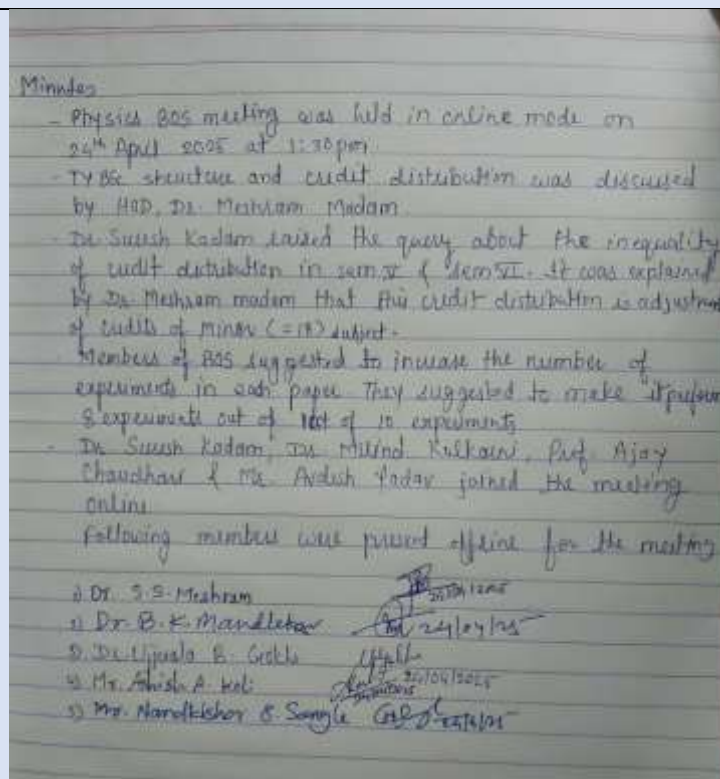 Minutes
- Physics BOS meeting was held in online mode on
24th April 2025 at 1:30pm.
- TYBSc structure and credit distribution was discussed
by HOD, Dr. Meshram Madam.
- Dr Suresh Kadam raised the query about the inequality
of credit distribution in sem V & sem VI. It was explained
by Dr. Meshram madam that this credit distribution is adjustment
of credits of minor (=18) subject.
- Members of BOS suggested to increase the number of
experiments in each paper They suggested to make
8 experiments out of of 10 experiments
- Dr Suresh Kadam, Dr Milind Kulkarni, Prof. Ajay
Chaudhari & Mr. Yadav joined the meeting
online
Following members were present offline for the meeting
1) Dr. S. S. Meshram
2) Dr. B. K. Mandlekar 24/04/25
3) Dr. Ujwala B.
4) Mr. Ashish A. Koli 24/04/2025
5) Mr. Nandkishor S. Sangle